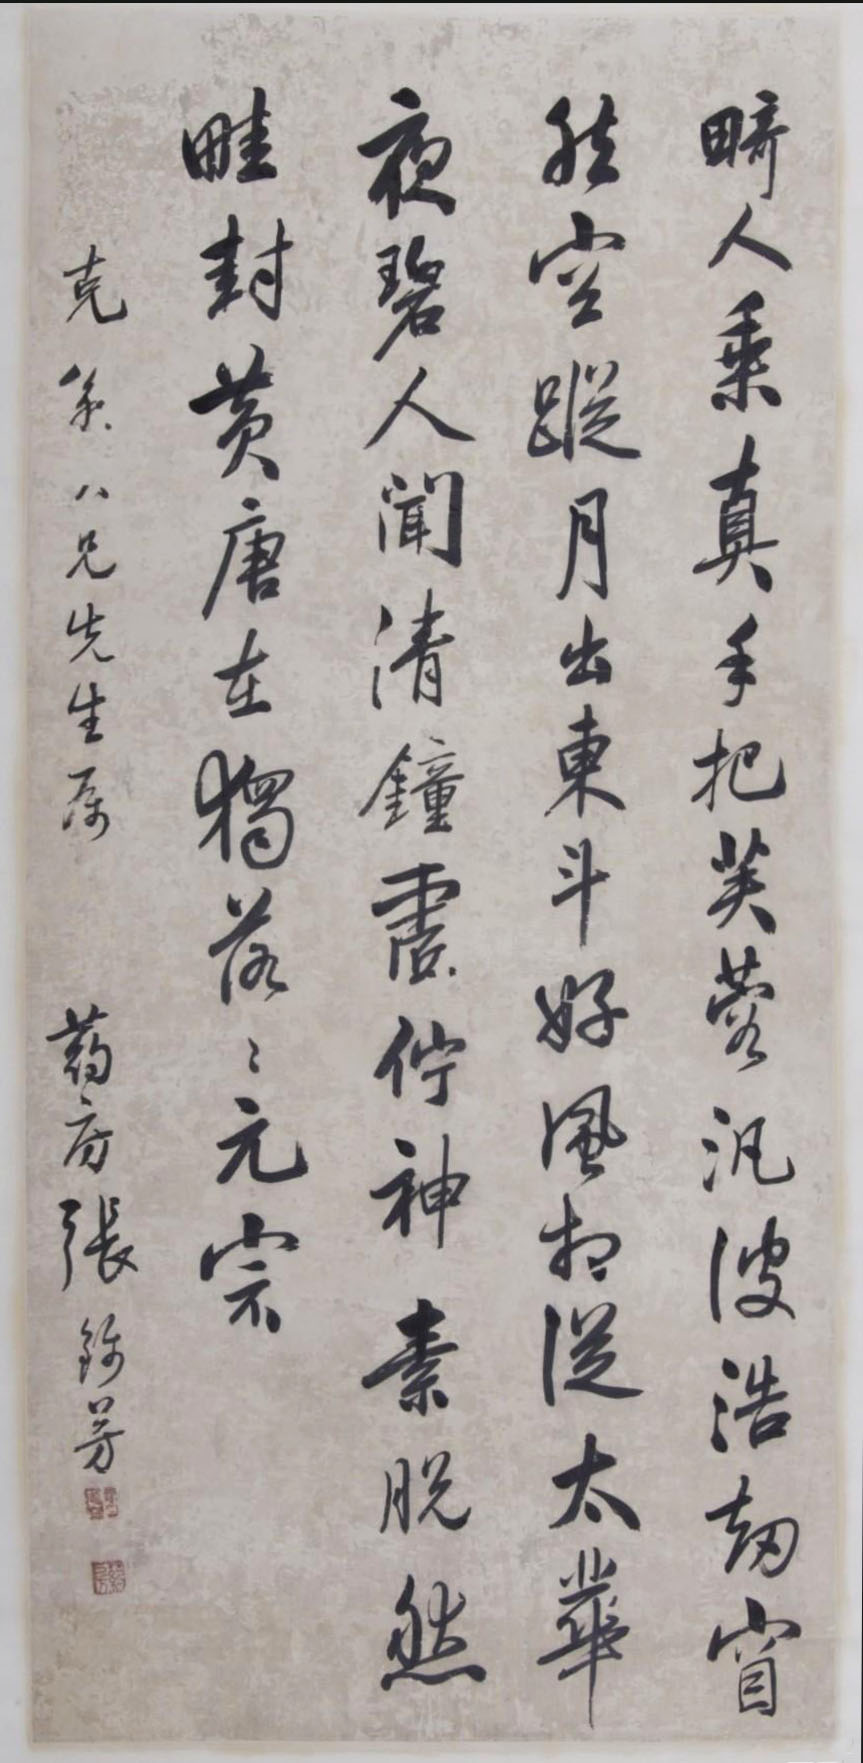 畸人乘真手把芙蓉汎彼浩劫窅
然空蹤月出東斗好風相從太華
夜碧人聞清鐘虛佇神素脫然
畦封黃唐在獨落〻元宗
克 八兄先生属
药房張錦芳